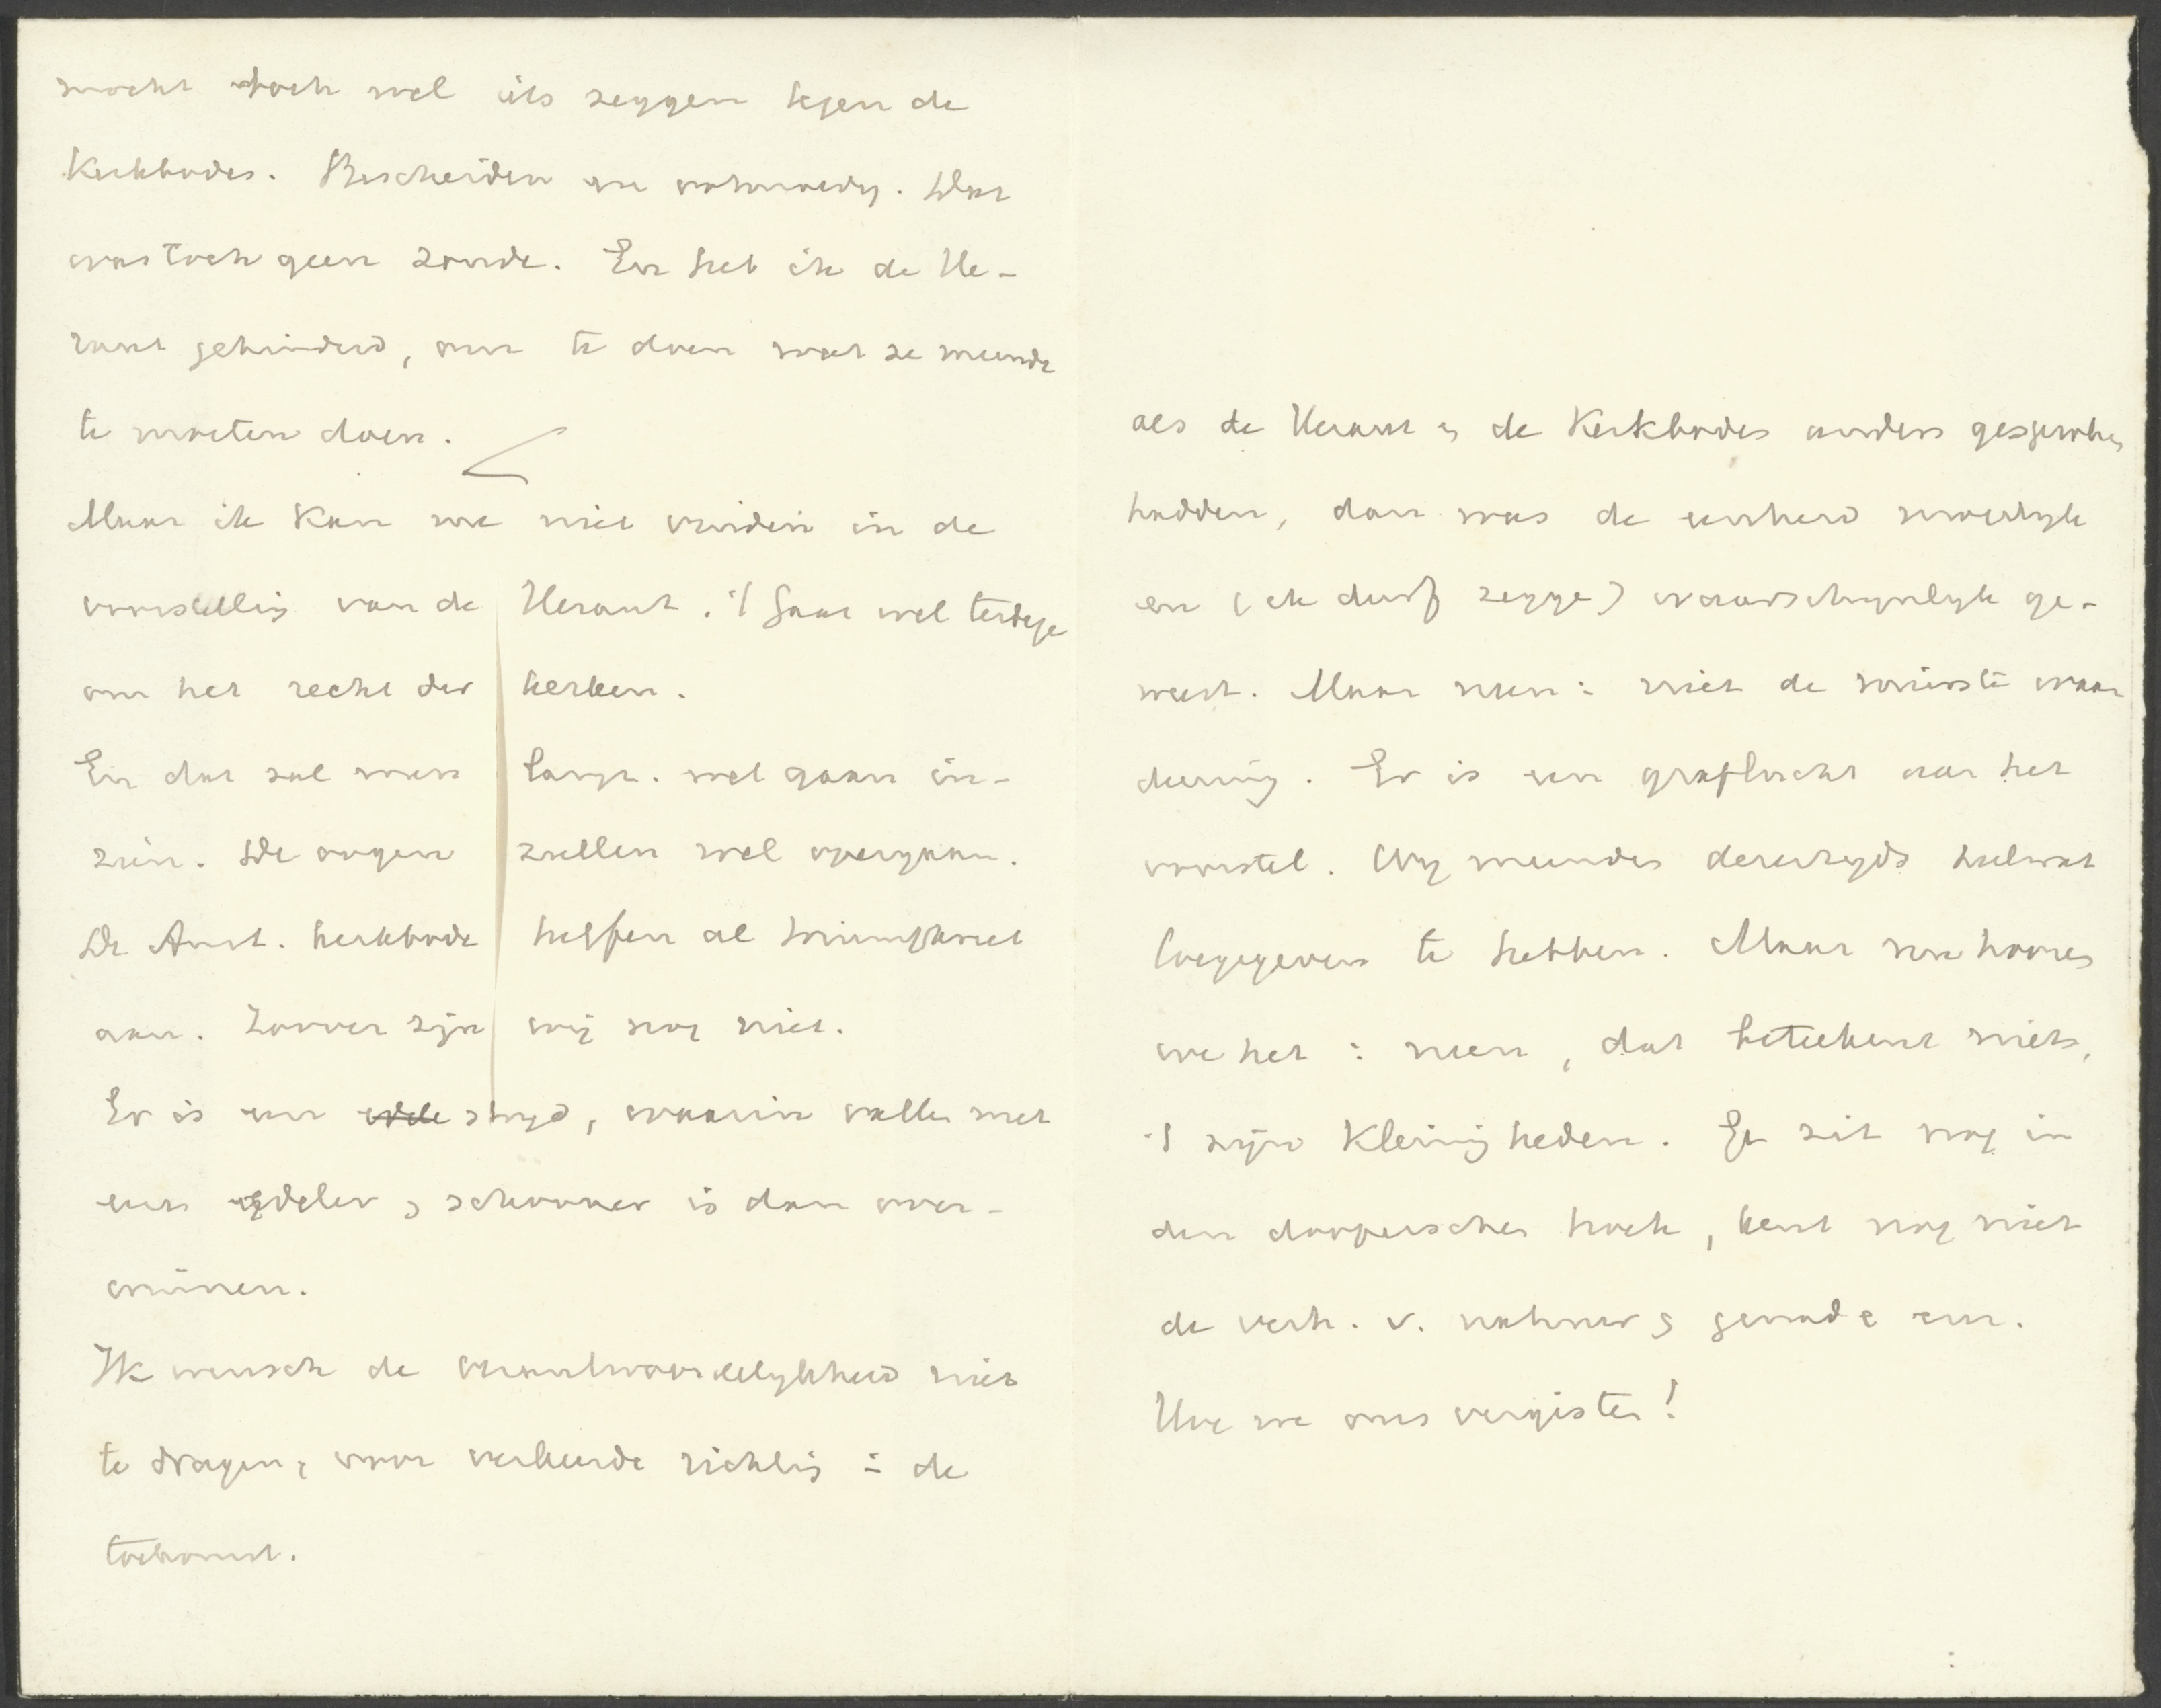 mocht toch wel iets zeggen tegen de
Kerkbodes. Bescheiden en ootmoedig. Dat
was toch geen zonde. En heb ik de He-
raut gehinderd, om te doen wat ze meende
te moeten doen.
Maar ik kan me niet vinden in de
voorstelling van de Heraut. 't Gaat wel terdege
om het recht der kerken.
En dat zal men langz. wel gaan in-
zien. De oogen zullen wel opengaan.
De Amst. Kerkbode heffen al triumflied
aan. Zoover zijn wij nog niet.
Er is een edele strijd, waarin vallen met
eere edeler & schooner is dan over-
winnen.
Ik wensch de verantwoordelijkheid niet
te dragen, voor verkeerde richting in de
toekomst.
als de Heraut & de Kerkbodes anders gesproken
hadden, dan was de eenheid moerlijk
en (ik durf zegge) waarschijnlijk ge-
weest. Maar neen: niet de minste waar
deering. Er is een graflucht aan het
voorstel. Wij meenden dererzijds heelwat
toegegeven te hebben. Maar nu hooren
we het: neen, dat beteekent niets,
't zijn kleinigheden. Ge zit nog in
den dooperschen hoek, kent nog niet
de verh. v. natuur & genade enz.
Hoe we ons vergisten!